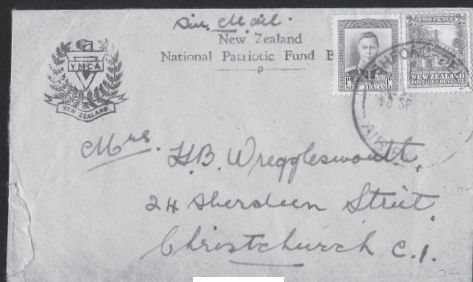 Air Mail.
New Zealand
National Patriotic Fund B
Y.M.C.A
NEW ZEALAND
TWO PENCE
NEW ZEALAND
Mrs. H.B. Wreggleswortt,
24 Aberdeen Street,
Christchurch C.1.